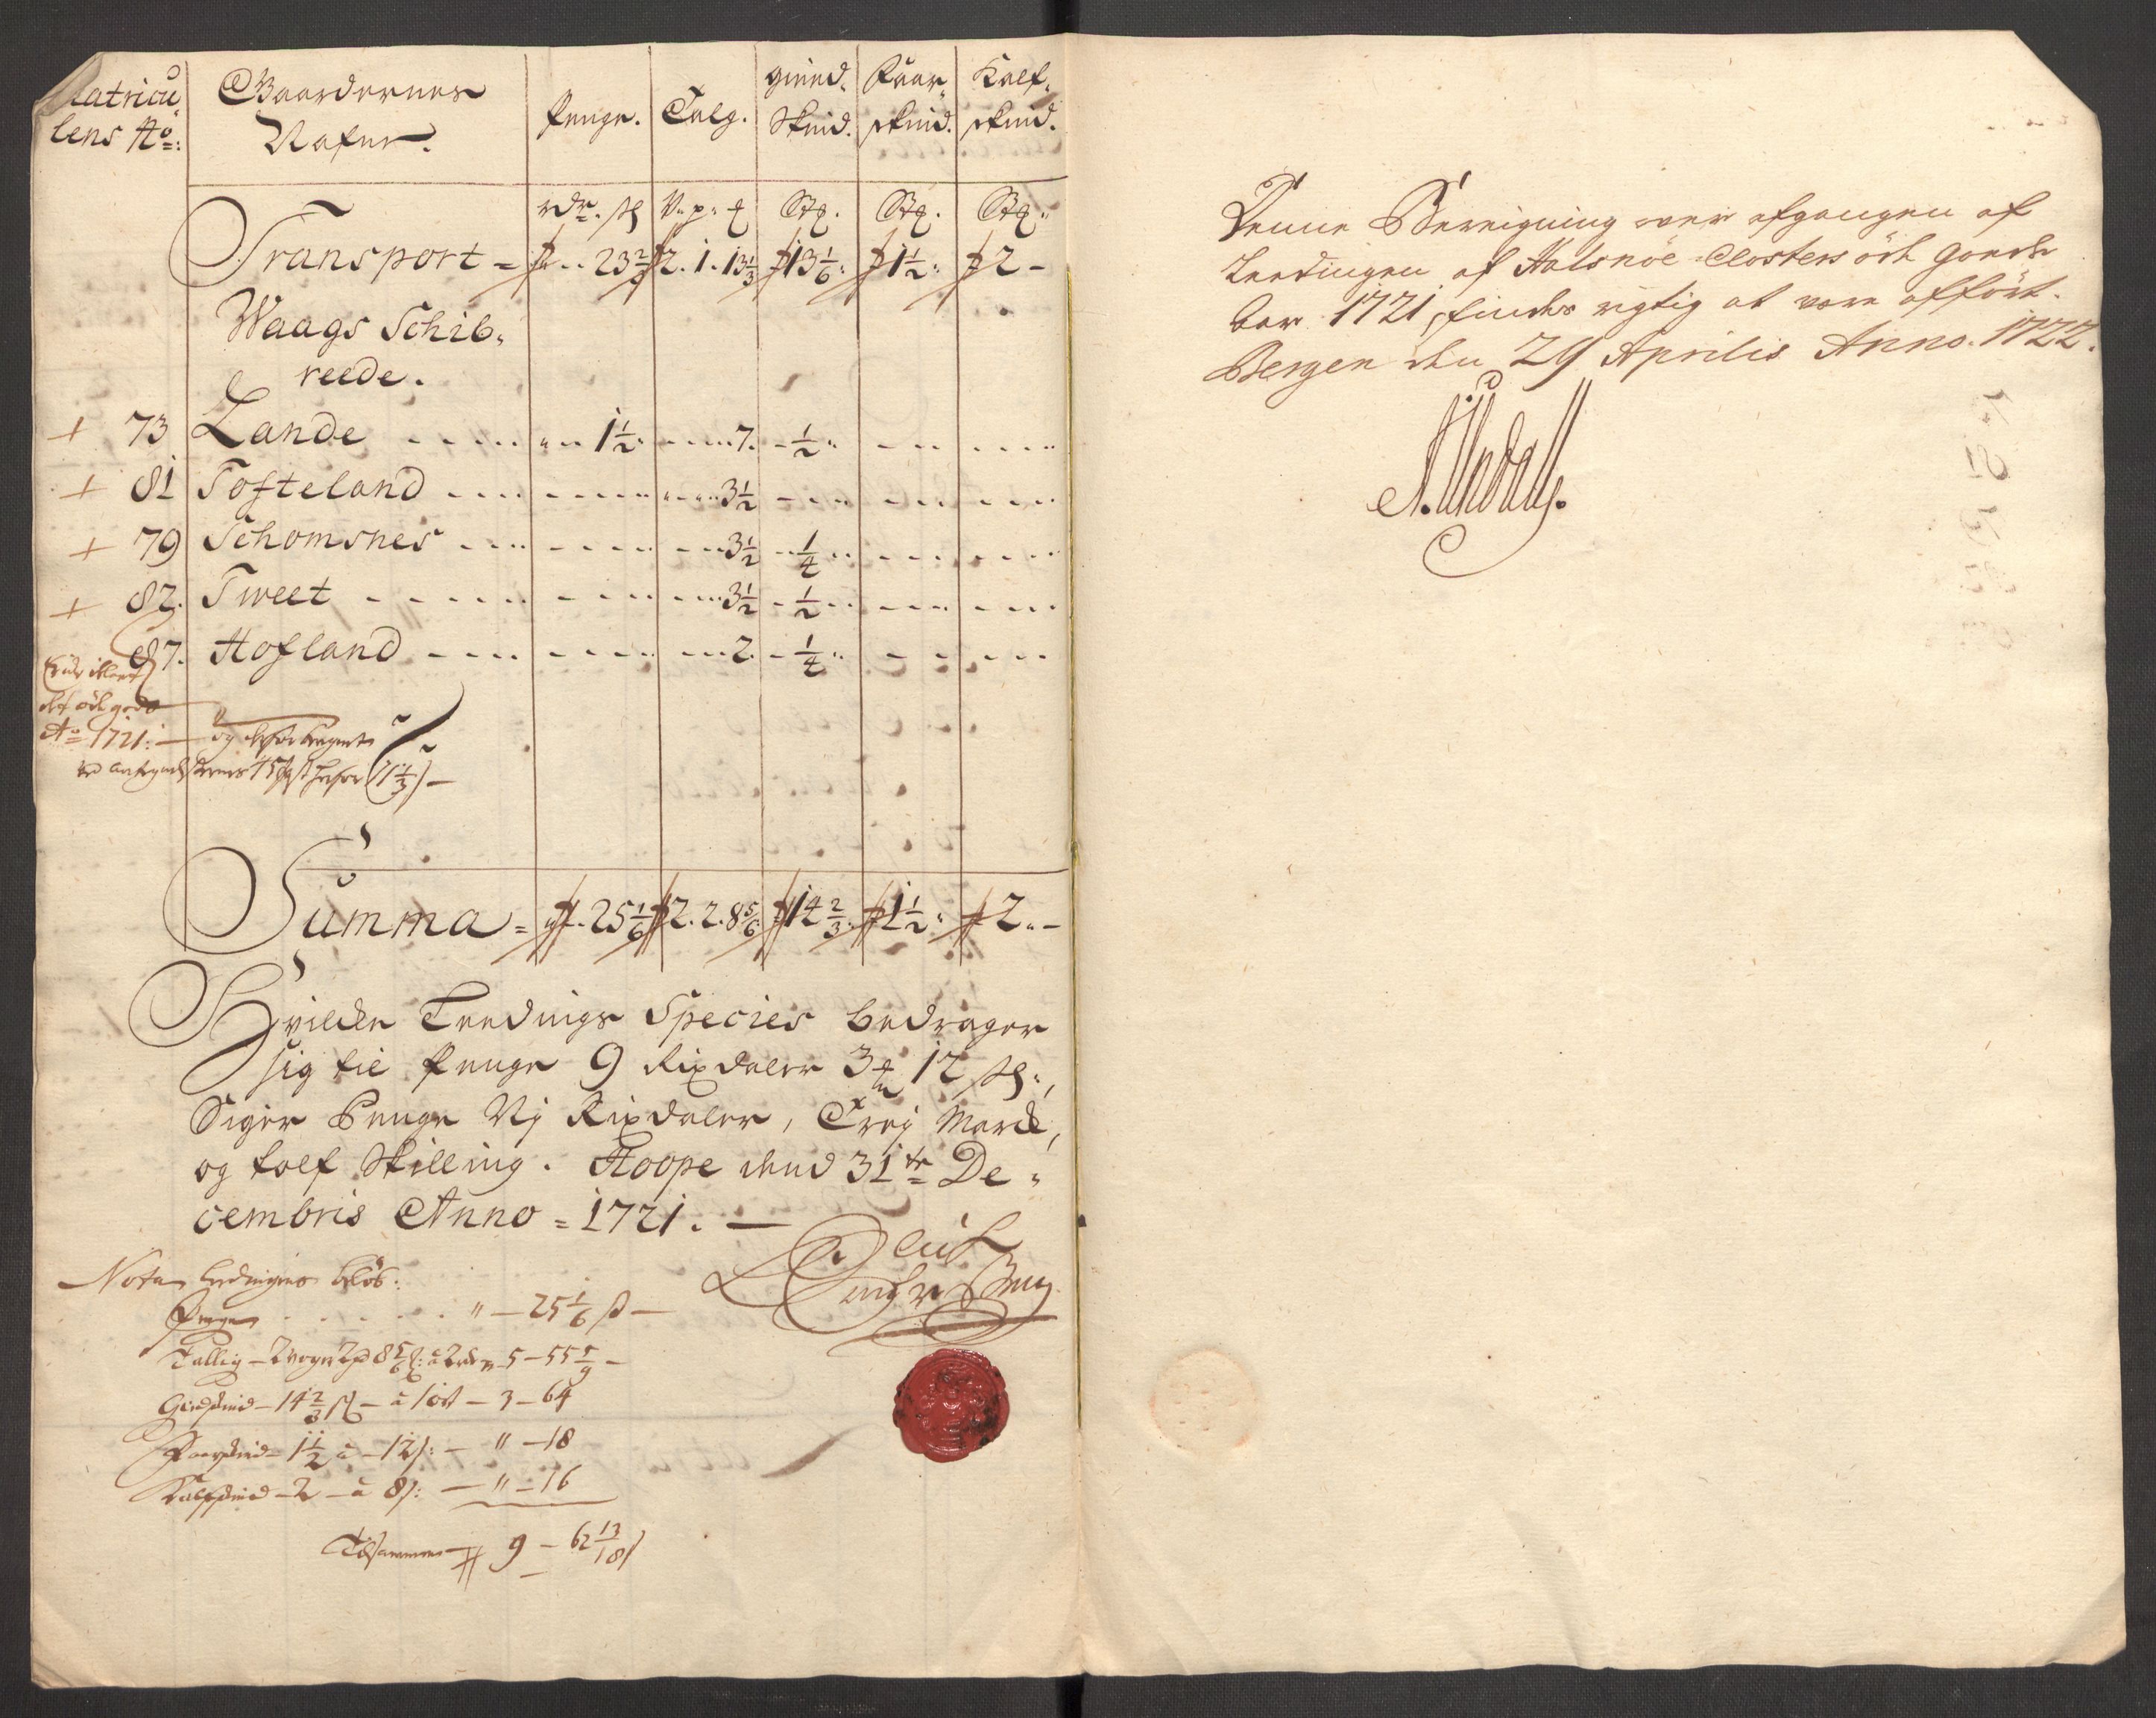 Matricu
lens No:
Gaardernes
Nafne.
Penge.
Talg.
Gieed.
Skind.
Faar
skind.
Kalf.
skind.
rdr. ſk
V. p. ℔
Stk.
Stk.
Stk.
Transport = 23 2/3 2. 1. 13 1/3 13 1/6 1 1/2 2 -
Waags Schib,
reede.
+ 73 Lande 1 1/2 7. 1/2
+ 81 Tofteland 3 1/2
+ 79 Schomsnes 3 1/2 1/4
+ 82. Tweet 3 1/2 1/2
87. Hofland 2. 1/4
Ao 1721:
Summa = 25 1/6 2. 2. 8 5/6 14 2/3 1 1/2 2. -
Hvilcken Leedings Species bedrager
sig til Penge 9 Rixdaler 3 mk 12 ſk:,
Siger Penge Nj Rixdaler, Trej Marck,
og tolf Skilling. Hoope dend 31te De,
cembris Anno = 1721. —
Nota Ledingens beløb:
Penge . . . . . . " — 25 1/6 ß —
Tallig — 2 woger 2 pd 8 5/6 ℔: à 2 rdr — 5 — 55 5/9 —
Giedskind — 14 2/3 — à 1 ort — 3 — 64
Faarskind — 1 1/2 à — 12 ß: — " — 18
Kalfskind — 2 — à 8 ß: — " — 16
Tilsammen 9 — 62 13/18 ß
Denne Bereigning over afgangen af
Leedingen af Halsnöe Closters öde Goeds
for 1721, findes rigtig at være affört.
Bergen den 29 Aprilis Anno. 1722.